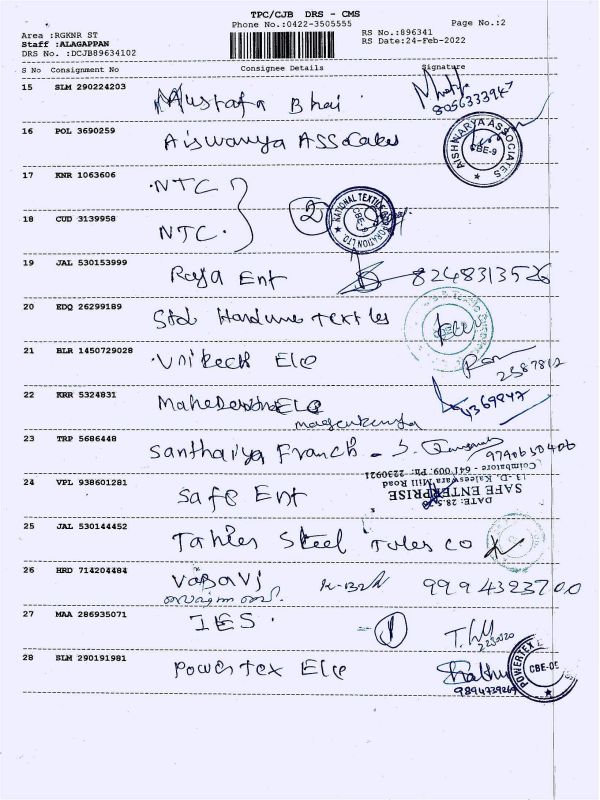 TPC/CJB DRS - CMS
Phone No.:0422-3505555
Page No.:2
Area :RGKNR ST
Staff :ALAGAPPAN
DRS No. :DCJB89634102
RS No.:896341
RS Date:24-Feb-2022
S No Consignment No Consignee Details Signature
15 SLM 290224203 Mustafa Bhai
16 POL 3690259 Aiswarya Assocates
AISHWARYA ASSOCIATES CBE-9
17 KNR 1063606 NTC
2
18 CUD 3139958 NTC.
NATIONAL TEXTILE CORPORATION LTD.
19 JAL 530153999 Raja Ent 8248313526
20 EDQ 26299189 Std Hardware textiles
21 BLR 1450729028 Unitech Ele
22 KRR 5324831
23 TRP 5686448 Santhaiya Franch - S.
24 VPL 938601281 Safe Ent
DATE: 28.5.20
SAFE ENTERPRISE
13-D, Kaleeswara Mill Road
Coimbatore - 641 009. Ph: 2230921
25 JAL 530144452 Taher Steel Tules co
26 HRD 714204484 Vasavi 9994323700
27 MAA 286935071 IES. 1
28 SLM 290191981 Powertex Ele
POWERTEX E CBE-05